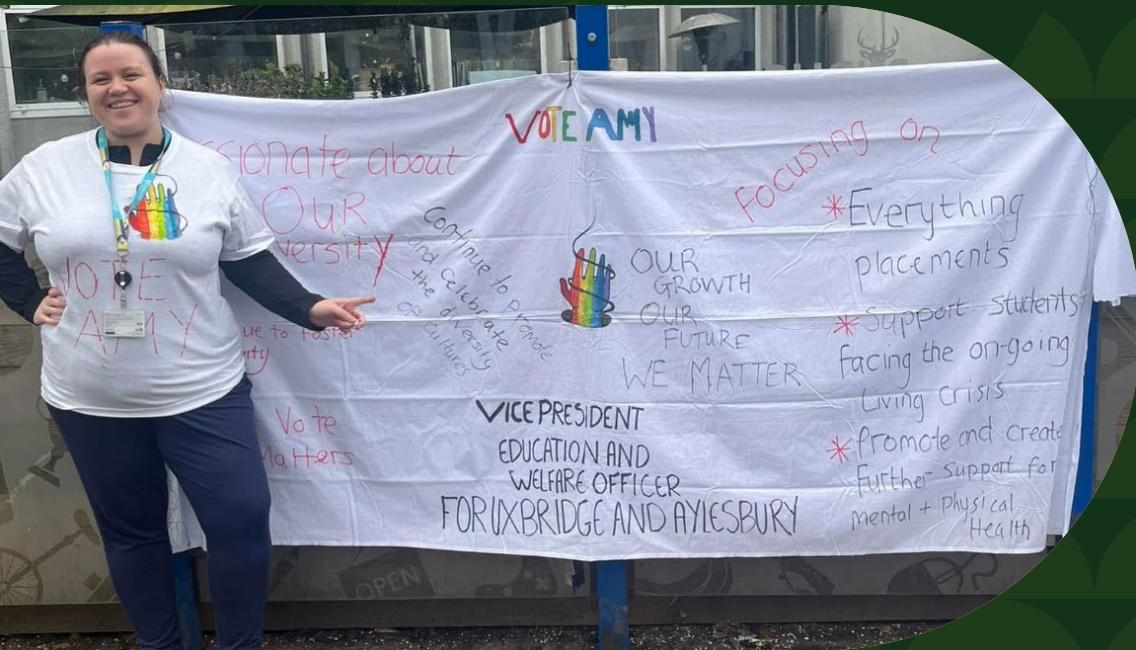 VOTE AMY
about
OUR
Continue to promote
and celebrate
the diversity
of cultures
to foster
Vote
VOTE
AMY
OUR
GROWTH
OUR
FUTURE
WE MATTER
VICE PRESIDENT
EDUCATION AND
WELFARE OFFICER
FOR UXBRIDGE AND AYLESBURY
Focusing on
*Everything
placements
*Support students
facing the on-going
Living Crisis
*Promote and create
Further support for
Mental + Physical
Health
OPEN